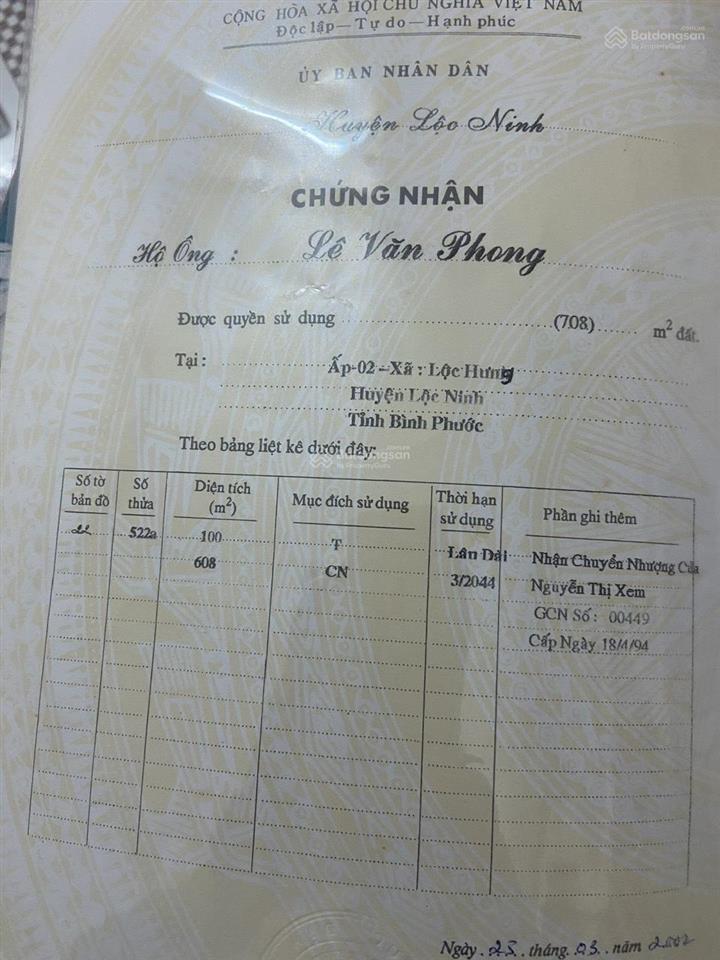 CỘNG HÒA XÃ HỘI CHỦ NGHĨA VIỆT NAM
Độc lập—Tự do—Hạnh phúc
Batdongsan
by PropertyGuru
ỦY BAN NHÂN DÂN
Huyện Lộc Ninh
CHỨNG NHẬN
Hộ Ông : Lê Văn Phong
Được quyền sử dụng (708) m² đất.
Tại : Ấp-02-Xã : Lộc Hưng
Huyện Lộc Ninh
Tỉnh Bình Phước
Theo bảng liệt kê dưới đây:
Batdongsan
by PropertyGuru
Số tờ bản đồ Số thửa Diện tích (m²) Mục đích sử dụng Thời hạn sử dụng Phần ghi thêm
22 522a 100 T Lâu Dài Nhận Chuyển Nhượng Của
608 CN 3/2044 Nguyễn Thị Xem
GCN Số : 00449
Cấp Ngày 18/4/94
Ngày 25 tháng 03 năm 2002